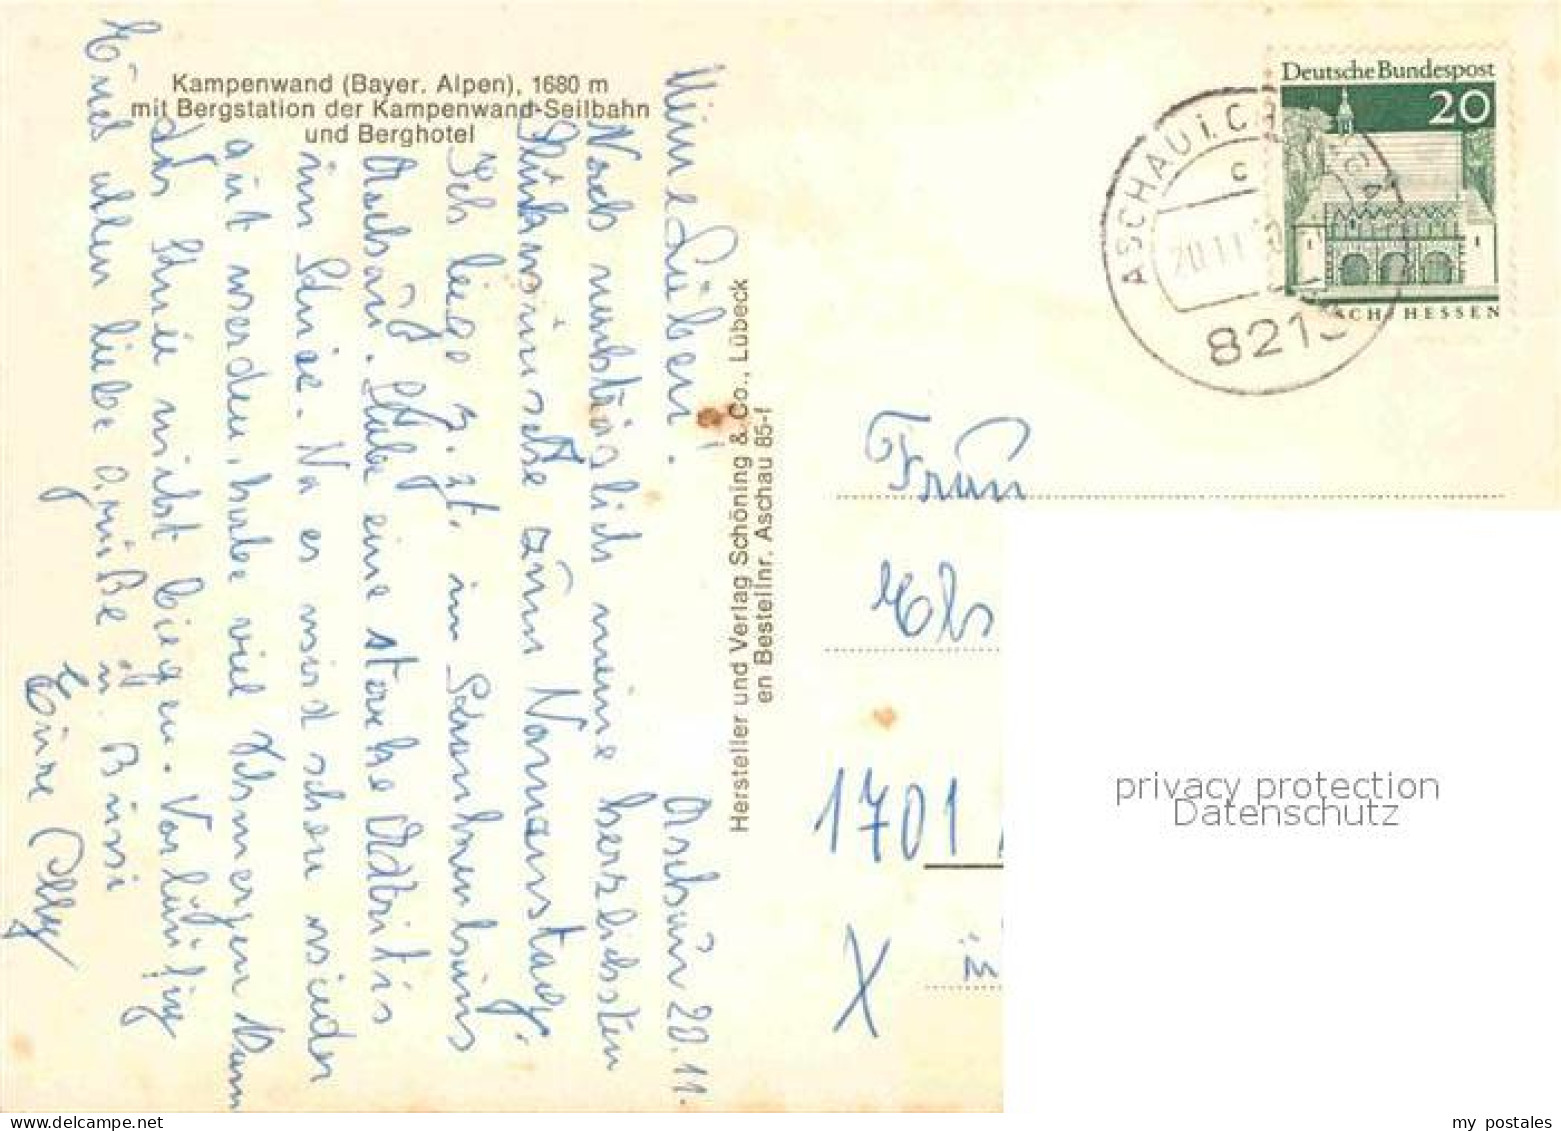 Kampenwand (Bayer. Alpen), 1680 m
mit Bergstation der Kampenwand-Seilbahn
und Berghotel
Aschau 20.11.
Meine Lieben!
Nach nachträglich meine herzlichsten
Glückwünsche zum Namenstag.
Ich liege z. Zt. im Krankenhaus
Aschau. Habe eine starke Arthritis
im Knie. Na es wird schon wieder
gut werden, habe viel Schmerzen kann
das Knie nicht biegen. Vorläufig
Euch allen liebe Grüße u. Bussi
Eure Olly
Hersteller und Verlag Schöning & Co., Lübeck
en Bestellnr. Aschau 85-f
Deutsche Bundespost
20
SCH/HESSEN
ASCHAU i. CH
c
20.11.
8213
Frau
Els
1701
X
privacy protection
Datenschutz
my postales